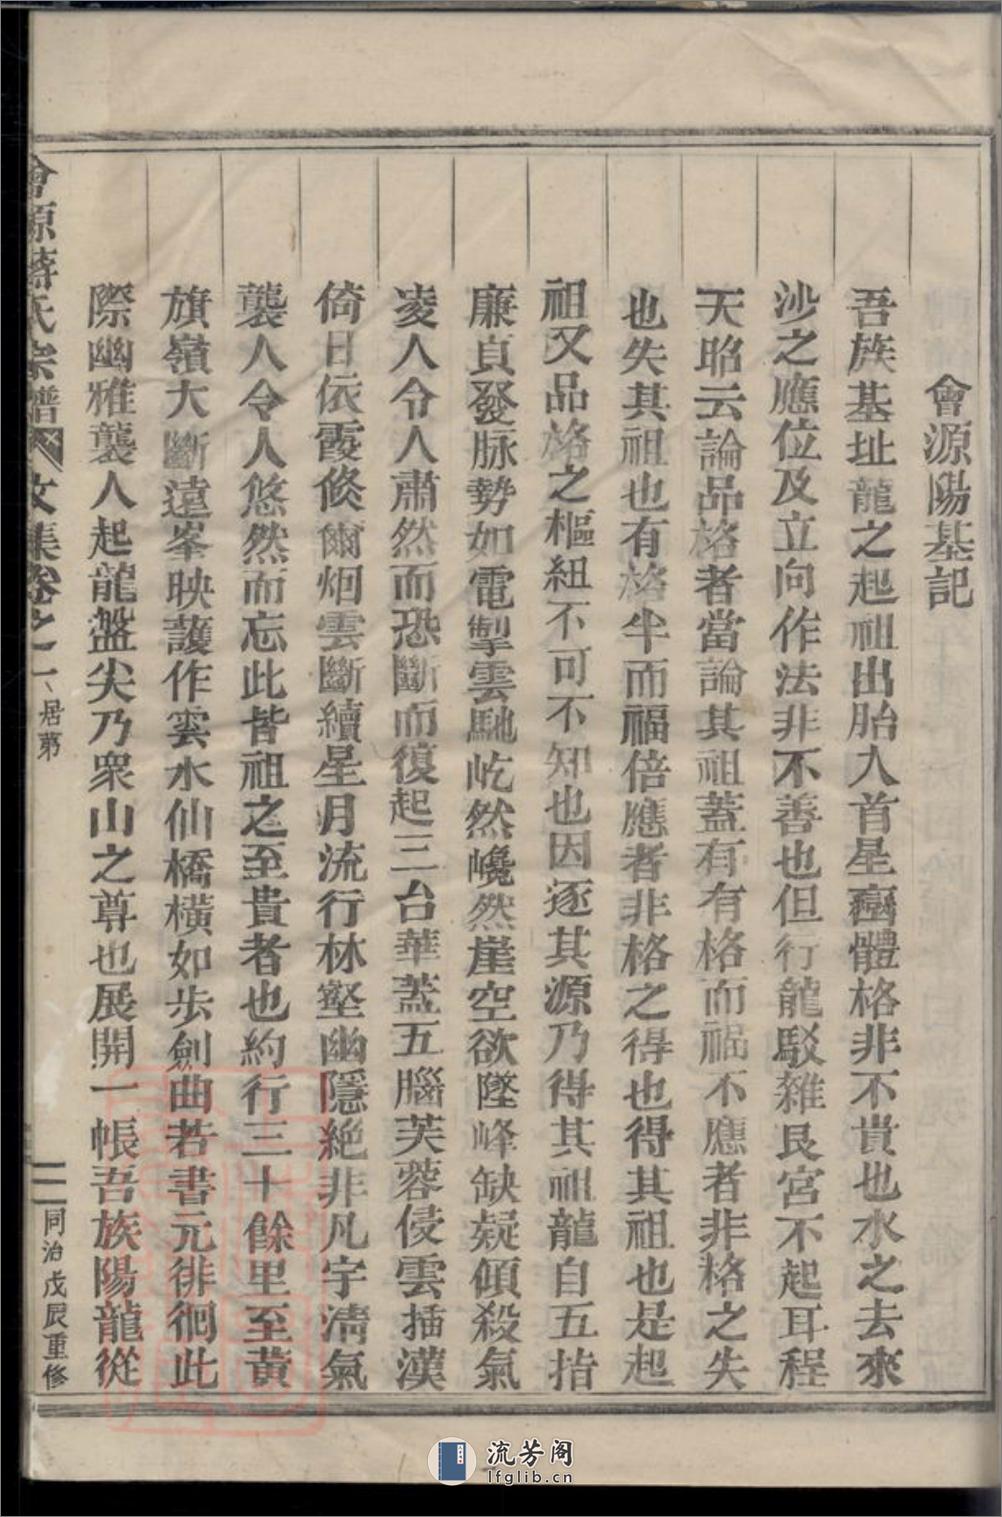 會源陽基記
吾族基址龍之起祖出胎入首星巒體格非不貴也水之去來
沙之應位及立向作法非不善也但行龍駁雜艮宮不起耳程
天昭云論品格者當論其祖蓋有有格而福不應者非格之失
也失其祖也有格半而福倍應者非格之得也得其祖也是起
祖又品格之樞紐不可不知也因逐其源乃得其祖龍自五指
廉貞發脉勢如電掣雲馳屹然巉然崖空欲墜峰缺疑傾殺氣
凌人令人肅然而恐斷而復起三台華蓋五腦芙蓉侵雲插漢
倚日依霞倐爾烟雲斷續星月流行林壑幽隱絕非凡宇清氣
襲人令人悠然而忘此皆祖之至貴者也約行三十餘里至黃
旗嶺大斷遠峯映護作雲水仙橋橫如步劍曲若書元徘徊此
際幽雅襲人起龍盤尖乃眾山之尊也展開一帳吾族陽龍從
會源蔣氏宗譜 文集卷之一 居第 二 同治戊辰重修
流芳阁
lfglib.cn